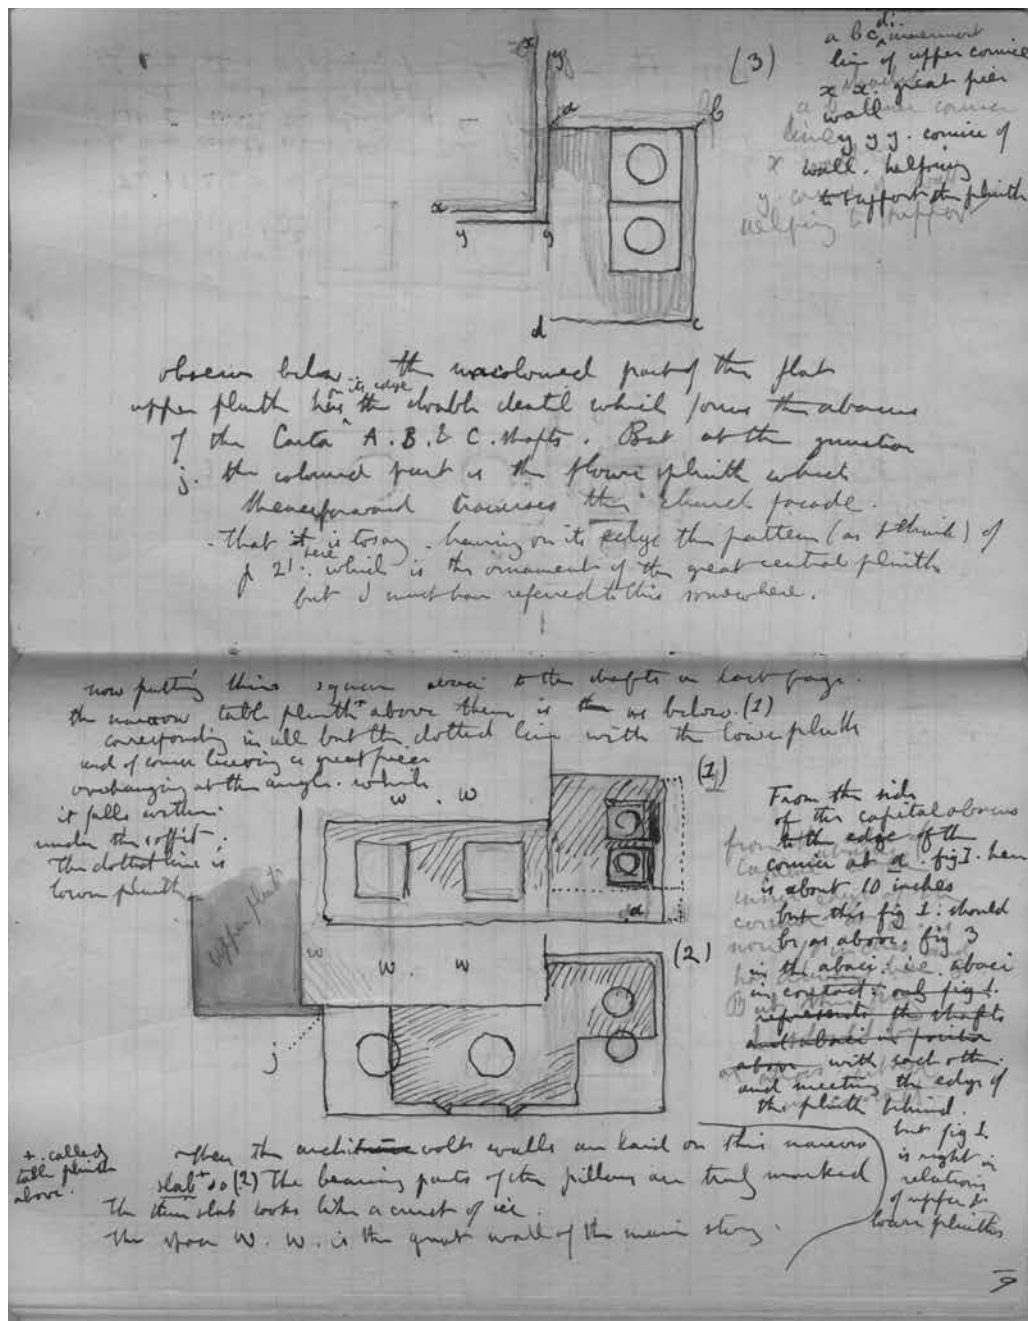 (3)
a b c di. innermost
line of upper cornice
x x. great pier
wall
y y y. cornice of
wall. helping
to support the plinth
helping to support
x
y
a
b
x
y
y
d
c
observe below the uncoloured part of the flat
upper plinth has on its edge the double dentil which forms the abacus
of the Carta A. B. & C. shafts. But at the junction
j. the coloured part is the flower plinth which
thenceforward traverses the church facade.
- that is to say. having on its edge the pattern (as I think) of
p 21. which is the ornament of the great central plinth
but I must have referred to this somewhere.
now putting their square abaci to the shafts in last page.
the narrow table plinth + above them is as below. (1)
corresponding in all but the dotted line with the lower plinth
and of course leaving a great piece
overhanging at the angle. while
it falls within
under the soffit;
The dotted line is
lower plinth
w . w
(1)
upper plinth
w
w . w
(2)
d
j
From the side
of the capital abacus
to the edge of the
cornice at d. fig I. here
is about 10 inches
but this fig 1. should
be as above, fig 3
in the abaci. i.e. abaci
in contact: only fig 1.
represents the shafts
and abaci in position
above with each other.
and meeting the edge of
the plinth behind.
but fig 1.
is right in
relations
of upper &
lower plinths
+ . called
table plinth
above.
Then the archivolt walls are laid on this narrow
slab + so (2) The bearing parts of the pillars are truly marked
The thin slab looks like a crust of ice.
The space W. W. is the great wall of the main story.
9